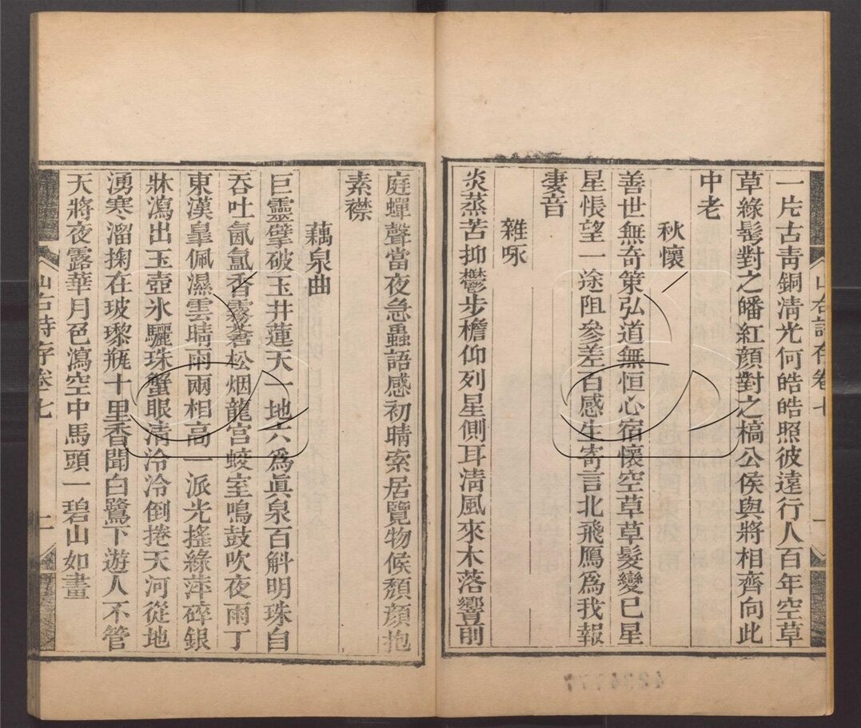 一片古青銅清光何皓皓照彼遠行人百年空草
草綠髩對之皤紅顏對之槁公侯與將相齊向此
中老
秋懷
善世無奇策弘道無恒心宿懷空草草髮變已星
星悵望一途阻參差百感生寄言北飛鴈為我報
妻音
雜咏
炎蒸苦抑鬱步檐仰列星側耳淸風來木落響前
山右詩存卷七
庭蟬聲當夜急蟲語感初晴索居覽物候頽顏抱
素襟
藕泉曲
巨靈擘破玉井蓮天一地六為眞泉百斛明珠自
吞吐氤氳香霧蒼松烟龍宮蛟室鳴鼓吹夜雨丁
東漢皐佩濕雲晴雨兩相高一派光搖綠萍碎銀
牀瀉出玉壺氷驪珠蟹眼淸泠泠倒捲天河從地
湧寒溜掬在玻瓈瓶十里香聞白鷺下遊人不管
天將夜露華月色瀉空中馬頭一碧山如畫
山右詩存卷七